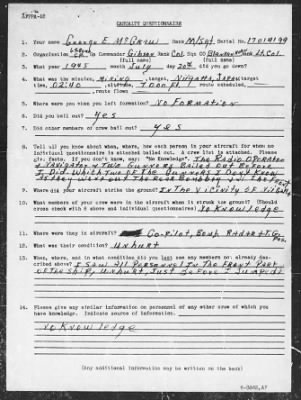 CASUALTY QUESTIONNAIRE
1. Your name George E. McGraw Rank M/Sgt. Serial No. 17019199
2. Organization Gp Commander Gibson Rank Col. Sqn CO Rank Lt. Col.
(full name) (full name)
3. What year 1945 month July day 20th did you go down?
4. What was the mission, Mining, target, Niigata, Japan, target
time, 0240, altitude, 7000 ft. route scheduled,
, route flown
5. Where were you when you left formation? No Formation
6. Did you bail out? Yes
7. Did other members of crew bail out? Yes
8. Tell all you know about when, where, how each person in your aircraft for whom no
individual questionnaire is attached bailed out. A crew list is attached. Please
give facts. If you don't know, say: "No Knowledge". The Radio Operator
Navigator & Two Gunners Bailed Out Before
I Did. Which Two Of The Gunners I Don't Know
as they went out the Rear Bombbay
9. Where did your aircraft strike the ground? In The Vicinity Of
10. What members of your crew were in the aircraft when it struck the ground? (Should
cross check with 8 above and individual questionnaires)
No Knowledge
11. Where were they in aircraft? Co-Pilot, Bomb. Radar & T.G.
Pos.
12. What was their condition? Unhurt
13. When, where, and in what condition did you last see any members not already des-
cribed above? I Saw All Personnel In The Front Part
of the Ship, Unhurt, Just Before I Jumped
14. Please give any similar information on personnel of any other crew of which you
have knowledge. Indicate source of information.
No Knowledge
(Any additional information may be written on the back)